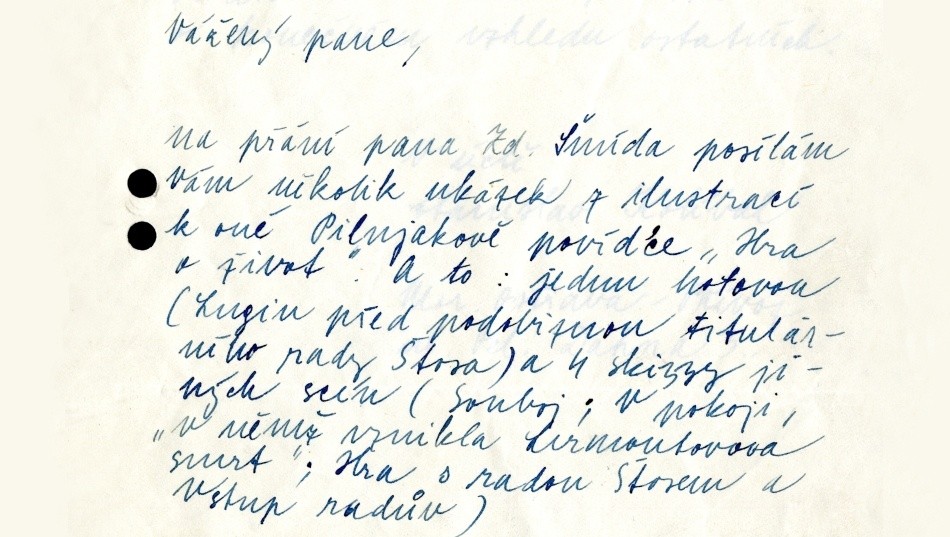 Vážený pane,
na přání pana Zd. Šmída posílám
Vám několik ukázek z ilustrací
k oné Pilnjakově povídce „Hra
o život“. A to: jednu hotovou
(Lugin před podobiznou titulár-
ního rady Štosa) a 4 skizzy ji-
ných scén (Souboj; V pokoji,
„v němž vznikla Lermontovova
smrt“; Hra s radou Štosem a
Vstup radův)